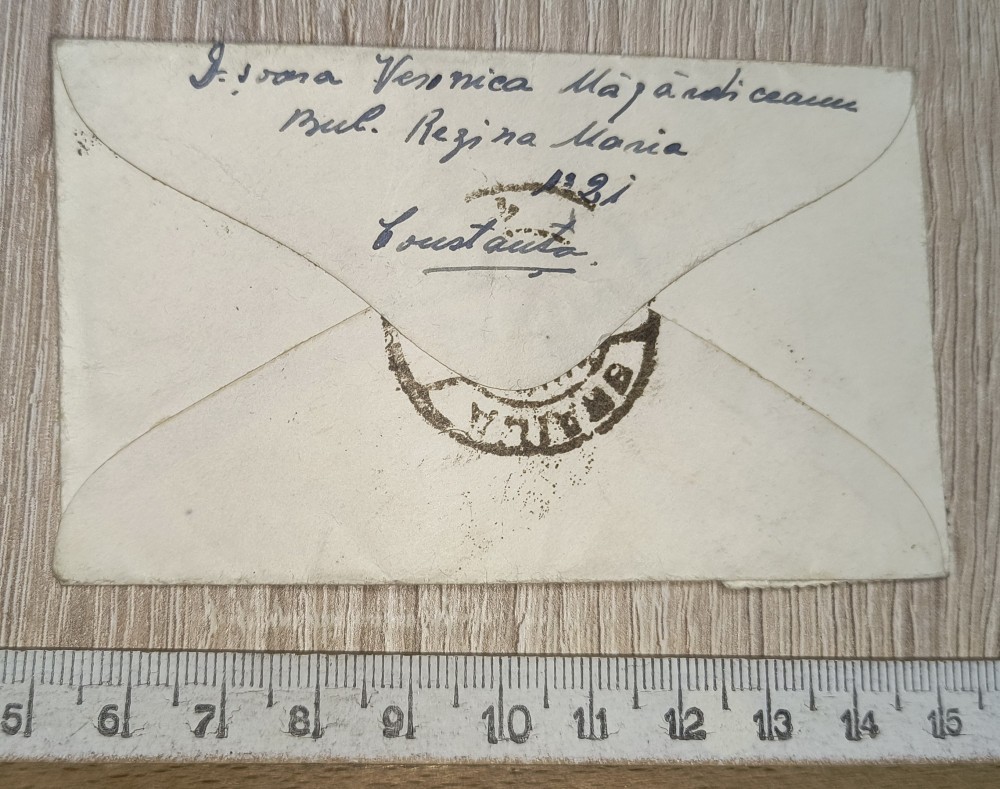 D-șoara Veronica Măgărdiceanu
Bul. Regina Maria
No 21
Constanța.
BRAILA
5 6 7 8 9 10 11 12 13 14 15